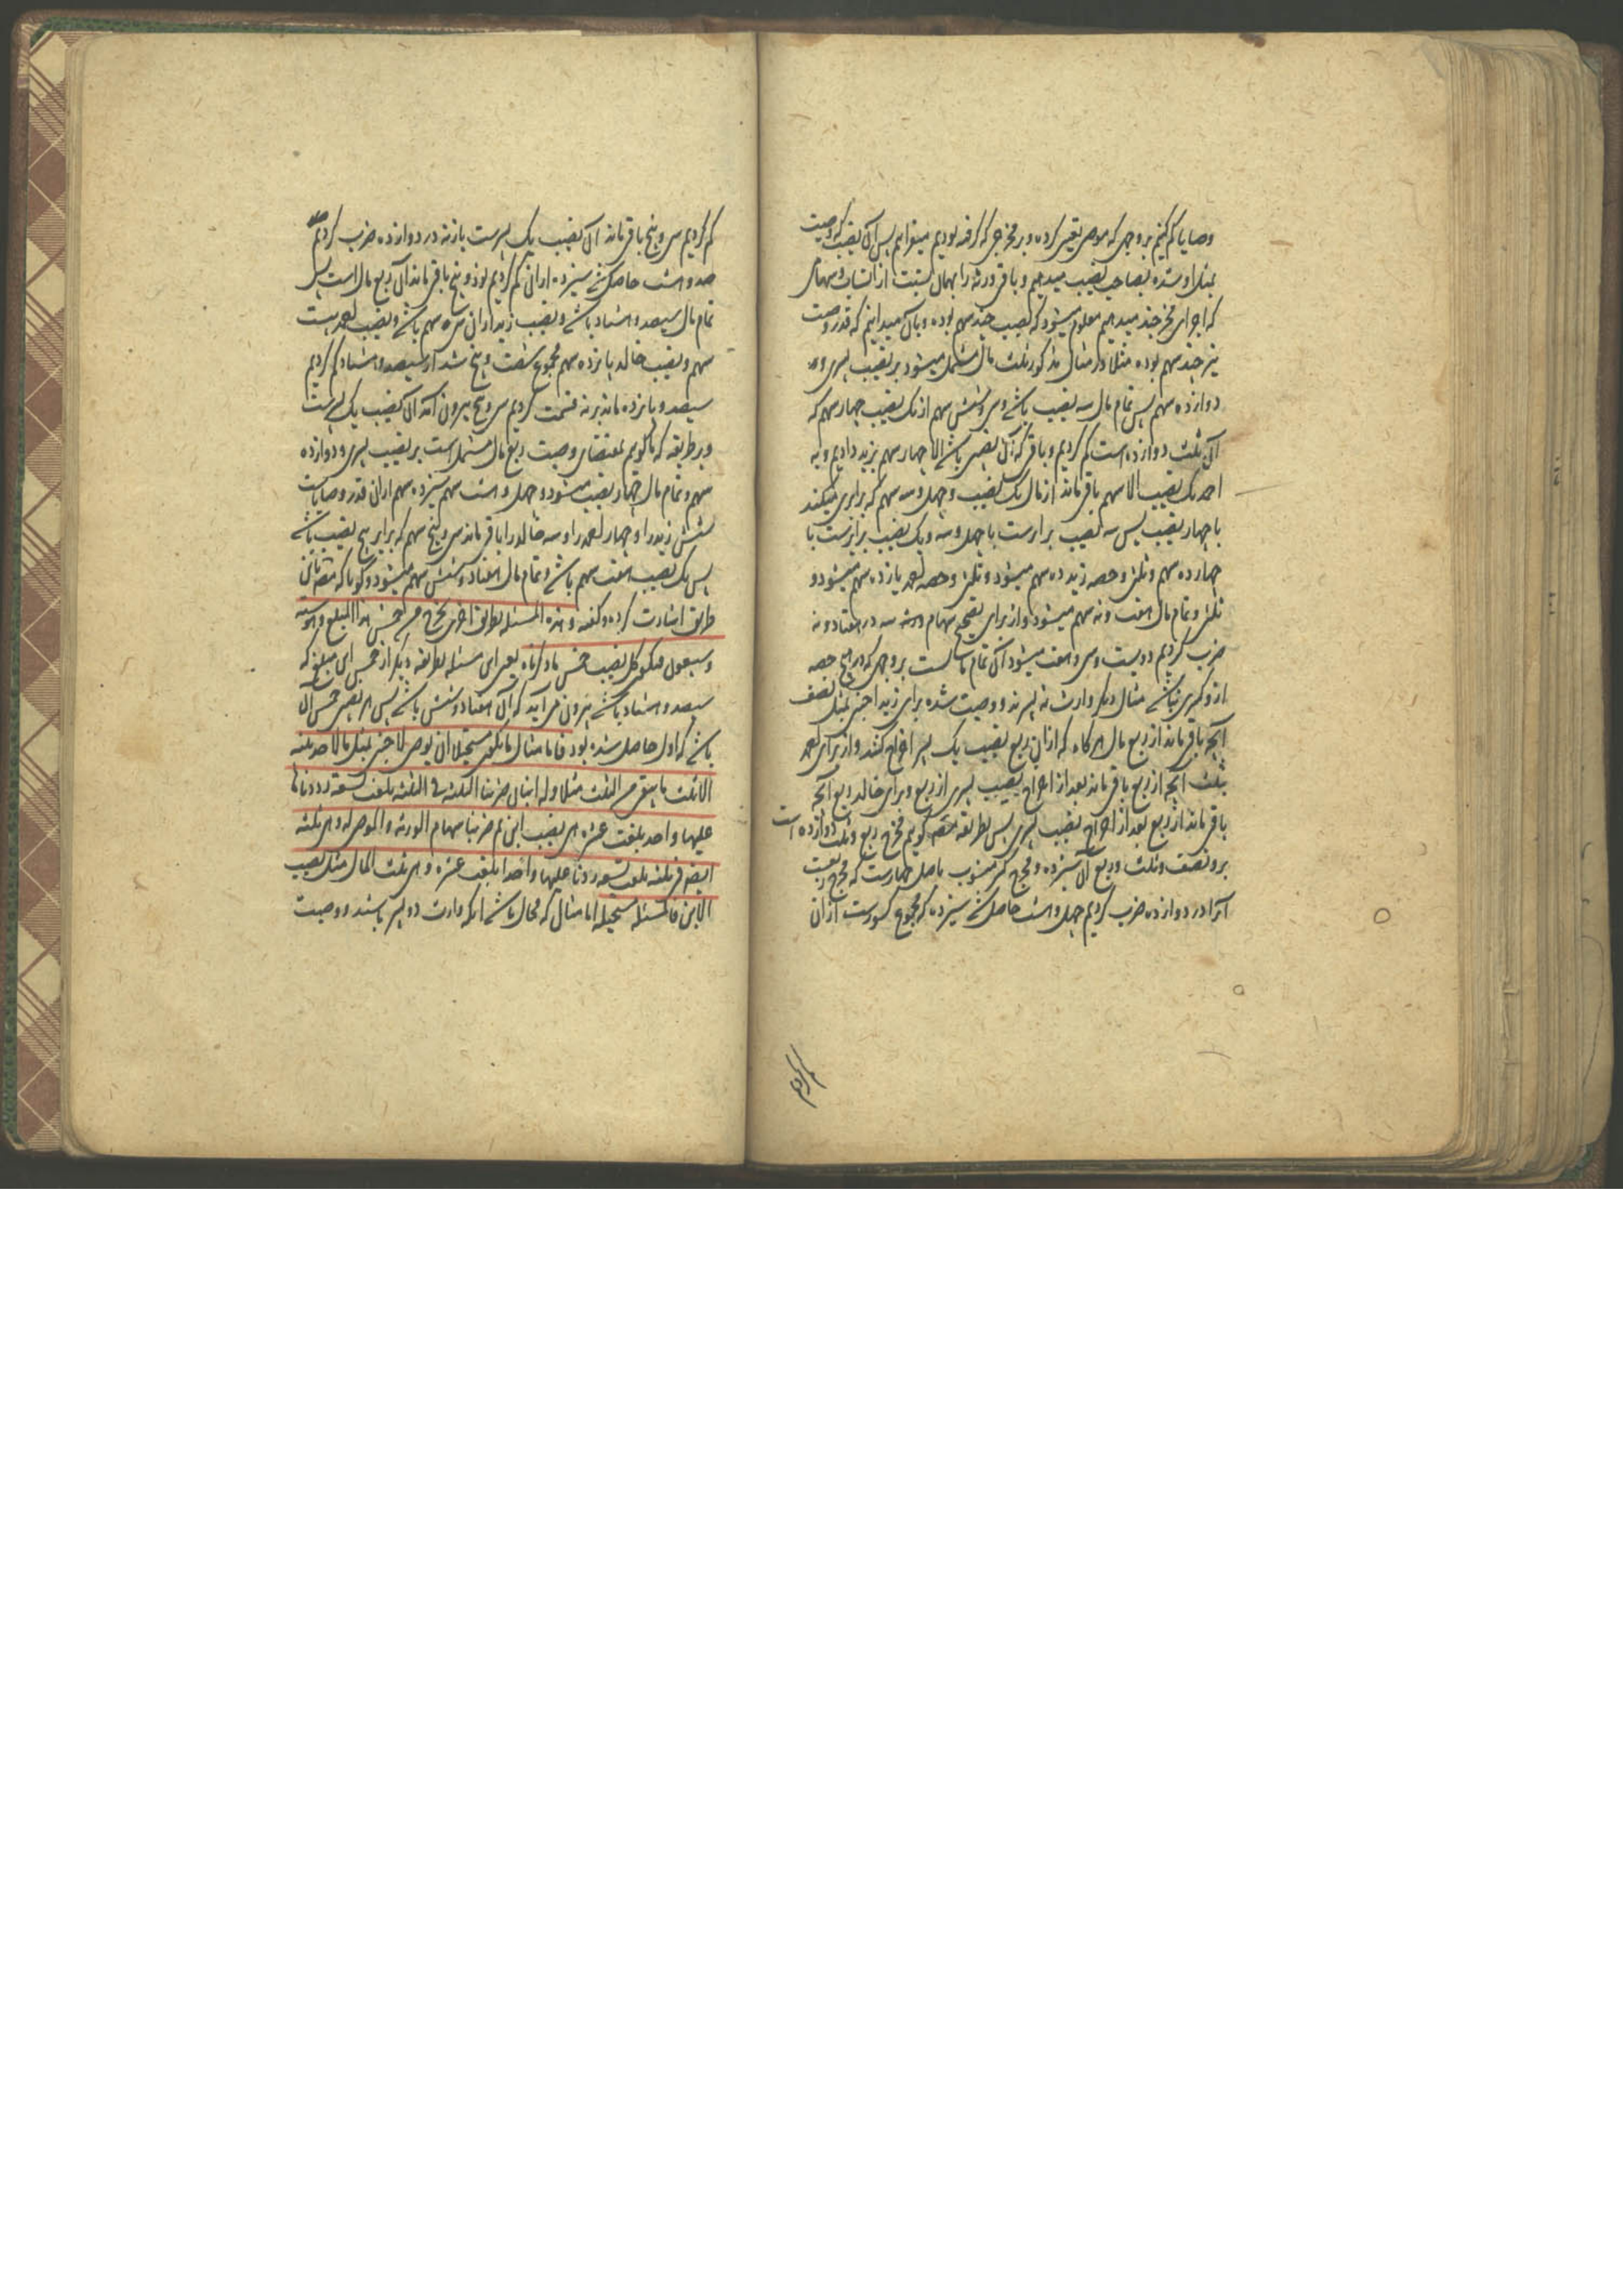 وصایا کم کنیم بر وجهی که موصی تعیین کرده و بر مخرجی که گرفته بودیم میفزاییم پس آن نصیب که وصیت
بمثل او شده بصاحب نصیب میدهیم و باقی ورثه را بهمان نسبت از انساب و سهمای
که اجرای مخرج چند میدهیم معلوم میشود که نصیب چند سهم بوده و بآن میدانیم که قدر وصیت
نیز چند سهم بوده مثلا در مثال مذکور ثلث مال مشتمل میشود بر نصیب پسری و
دوازده سهم پس تمام مال سه نصیب باشد و سی و شش سهم از یک نصیب چهار سهم که
آن ثلث دوازده است کم کردیم و باقی که آن نصیبی باشد الا چهار سهم بزید دادیم و به
احمد یک نصیب الا سهم باقی ماند از مال یک نصیب و چهل و سه سهم که برابری میکند
با چهار نصیب پس سه نصیب برابرست با چهل و سه و یک نصیب برابرست با
چهارده سهم و ثلثی و حصه زید ده سهم میشود و ثلثی و حصه احمد یازده سهم میشود و
ثلثی و تمام مال هفتاد و نه سهم میشود و از برای تصحیح سهام ورثه سه در هفتاد و نه
ضرب کردیم دویست و سی و هفت میشود آن تمام مالست بر وجهی که در هیچ حصه
ازو کسری نباشد مثال دیگر وارث نه پسرند و وصیت شده برای زید اجنبی بمثل نصف
آنچه باقی ماند از ربع مال هر گاه که ازان ربع نصیب یک پسر اخراج کنند و از برای احمد
بثلث آنچه از ربع باقی ماند بعد از اخراج نصیب پسری از ربع و برای خالد ربع آنچه
باقی ماند از ربع بعد از اخراج نصیب پسری پس بطریقه گوییم مخرج ربع و ثلث دوازده است
برو نصف و ثلث و ربع آن سیزده و مخرج کسر منسوب باصل چهارست که مخرج ربعست
آنرا در دوازده ضرب کردیم چهل و هشت حاصل شد سیزده که مجموع کسورست ازان
کم کردیم
کم کردیم سی و پنج باقی ماند آن نصیب یک پسرست باز نه در دوازده ضرب کردیم
صد و هشت حاصل شد سیزده ازان کم کردیم نود و پنج باقی ماند آن ربع مال است پس
تمام مال سیصد و هشتاد باشد و نصیب زید ازان سی سهم باشد و نصیب احمد بیست
سهم و نصیب خالد پانزده سهم مجموع شصت و پنج شد از سیصد و هشتاد کم کردیم
سیصد و پانزده ماند بر نه قسمت کردیم سی و پنج بیرون آمد آن نصیب یک پسرست
و بر طریقه که ما گوییم بمقتضای وصیت ربع مال مشتمل است بر نصیب پسری و دوازده
سهم و تمام مال چهار نصیب میشود و چهل و هشت سهم سیزده سهم ازان قدر وصایاست
شش زید را و چهار احمد را و سه خالد را باقی ماند سی و پنج سهم که برابر پنج نصیب باشد
پس یک نصیب هفت سهم باشد و تمام مال هفتاد و شش سهم میشود و گویا که مصنف باین
طریق اشارت کرده و گفته و هذه المسئله بطریق اخری یخرج من خمس هذا المبلغ و هو ستة
و سبعون فیکون کل نصیب خمس ما ذکرناه یعنی این مسئله بطریقه دیگر از خمس این مبلغ که
سیصد و هشتاد باشد بیرون می آید که آن هفتاد و شش باشد پس هر نصیبی خمس آن
باشد که اول حاصل شده بود فاما مثال ما یکون مستحیلا ان یوصی لاجنبی بمثل ما لاحد بنیه
الا ثلث ما یبقی من الثلث مثلا و له ابنان ضربنا الثلثة فی الثلثة بلغت تسعة زدنا
علیها واحد بلغت عشرة هی نصیب ابن ثم ضربنا سهام الورثة و الموصی له و هی ثلثة
ایضا فی ثلثة بلغت تسعة زدنا علیها واحدا بلغت عشرة و هی ثلث المال مثل نصیب
الابن فالمسئلة مستحیلة اما مثال که محال باشد آنکه وارث دو پسر باشند و وصیت